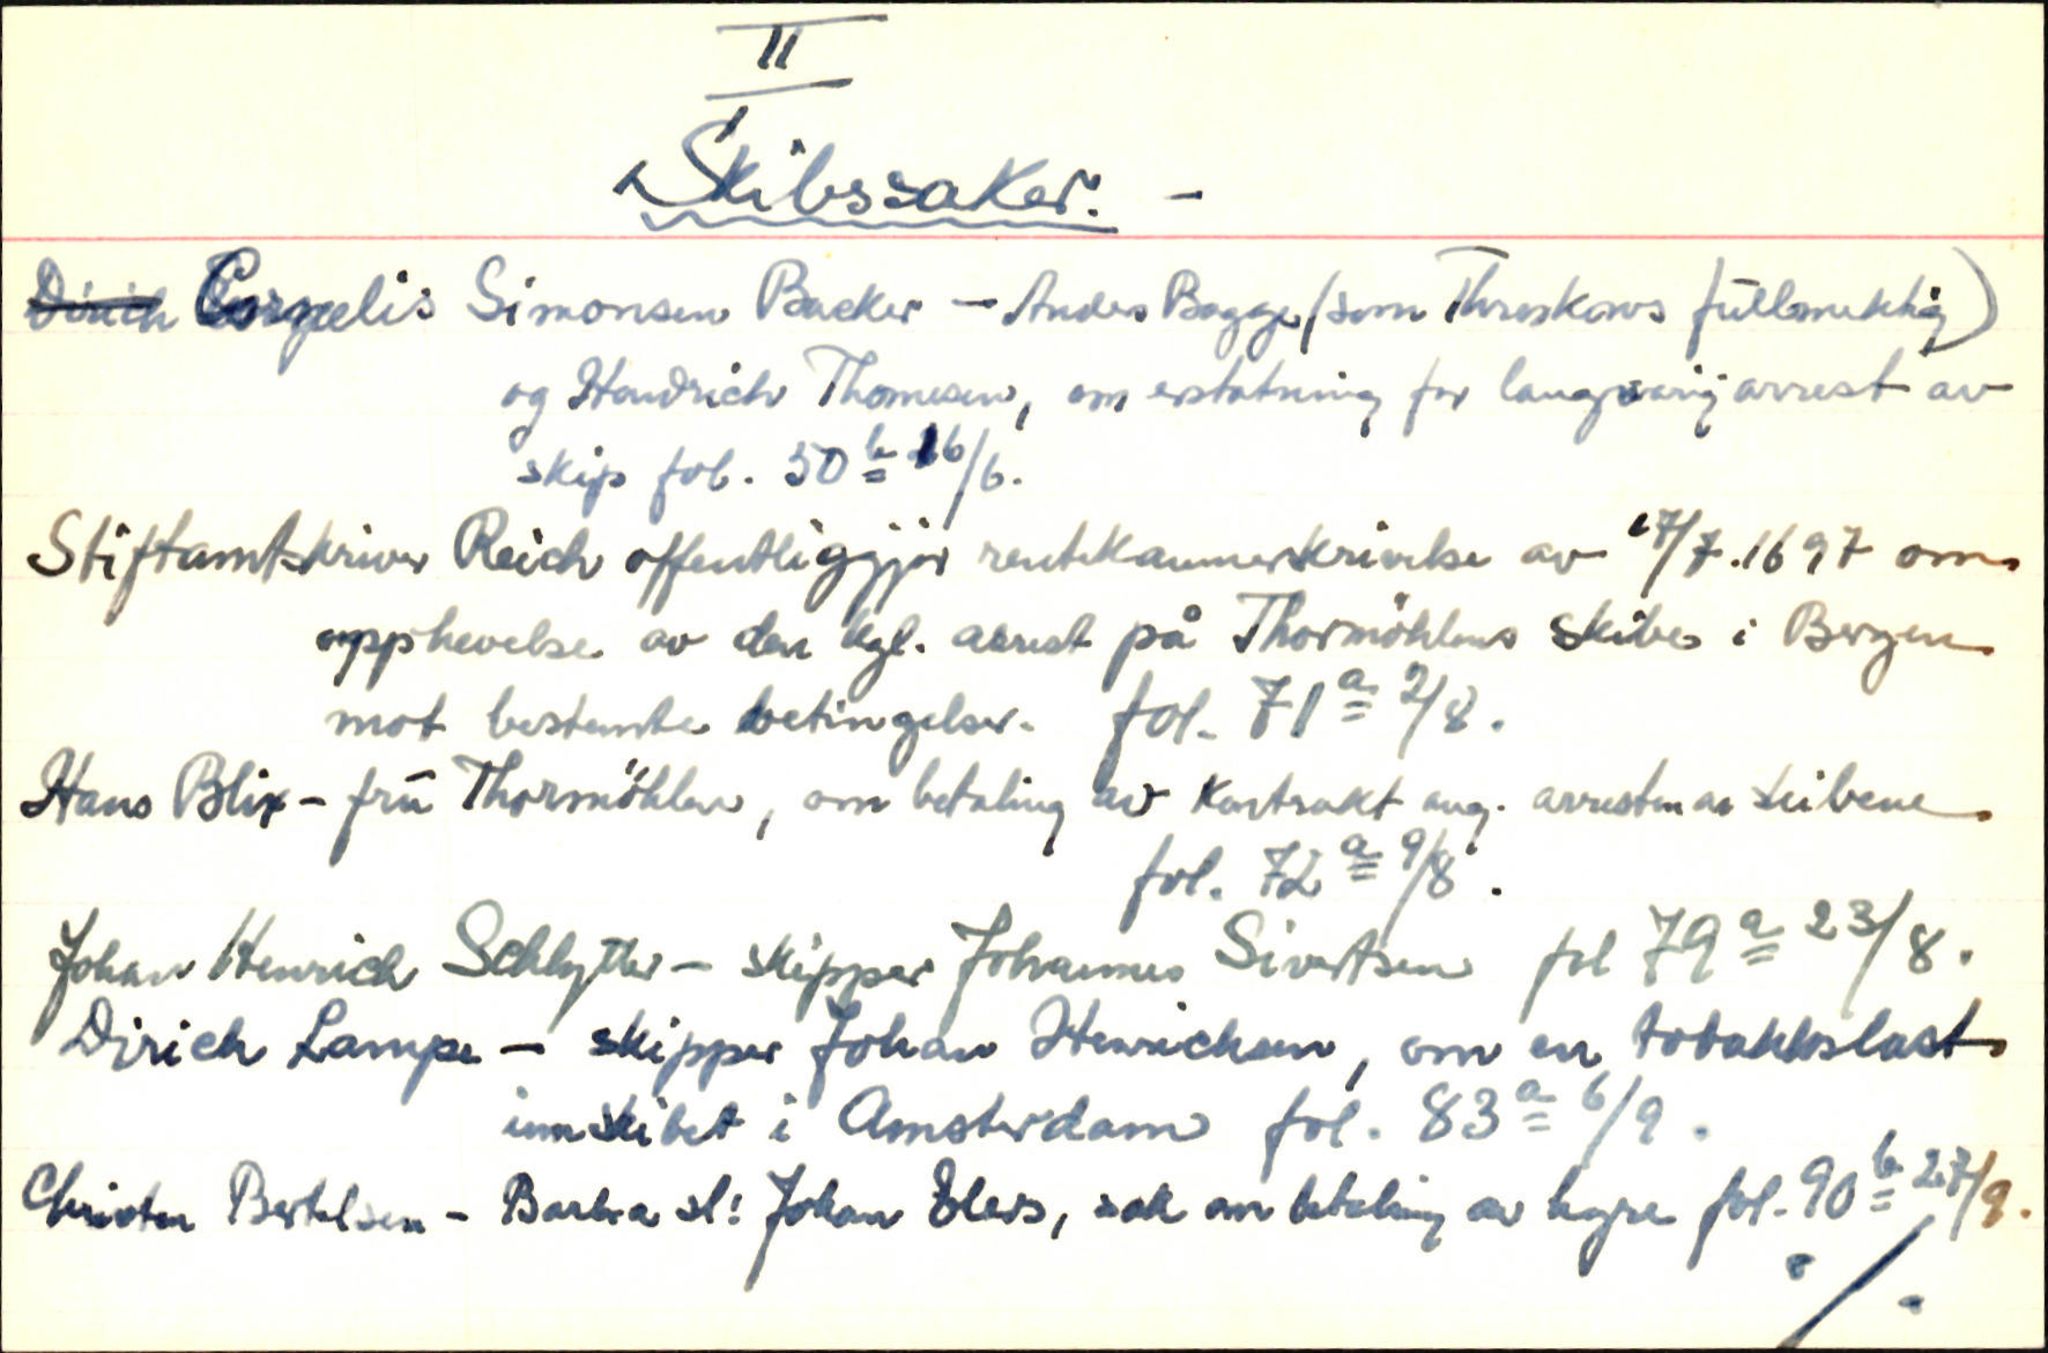 II
Skibssaker. -
Dirich Cornelis Simonsen Backer - Anders Bagge (som Throskows fullmektig)
og Hendrich Thomesen, om erstatning for langvarig arrest av
skip fol. 50b 16/6.
Stiftamtskriver Reich offentliggjør rentekammerskrivelse av 17/7.1697 om
opphevelse av den kgl. arrest på Thormöhlens skibe i Bergen
mot bestemte betingelser. fol. 71a 2/8.
Hans Blix - fru Thormöhlen, om betaling av kontrakt ang. arresten av skibene
fol. 72a 9/8.
Johan Henrich Schlyter - skipper Johannes Sivertsen fol 79a 23/8.
Dirich Lampe - skipper Johan Henrichsen, om en tobakkslast
innskibet i Amsterdam fol. 83a 6/9.
Christen Bertelsen - Barbra sl: Johan Elers, sak om betaling av hyre fol. 90b 27/9.